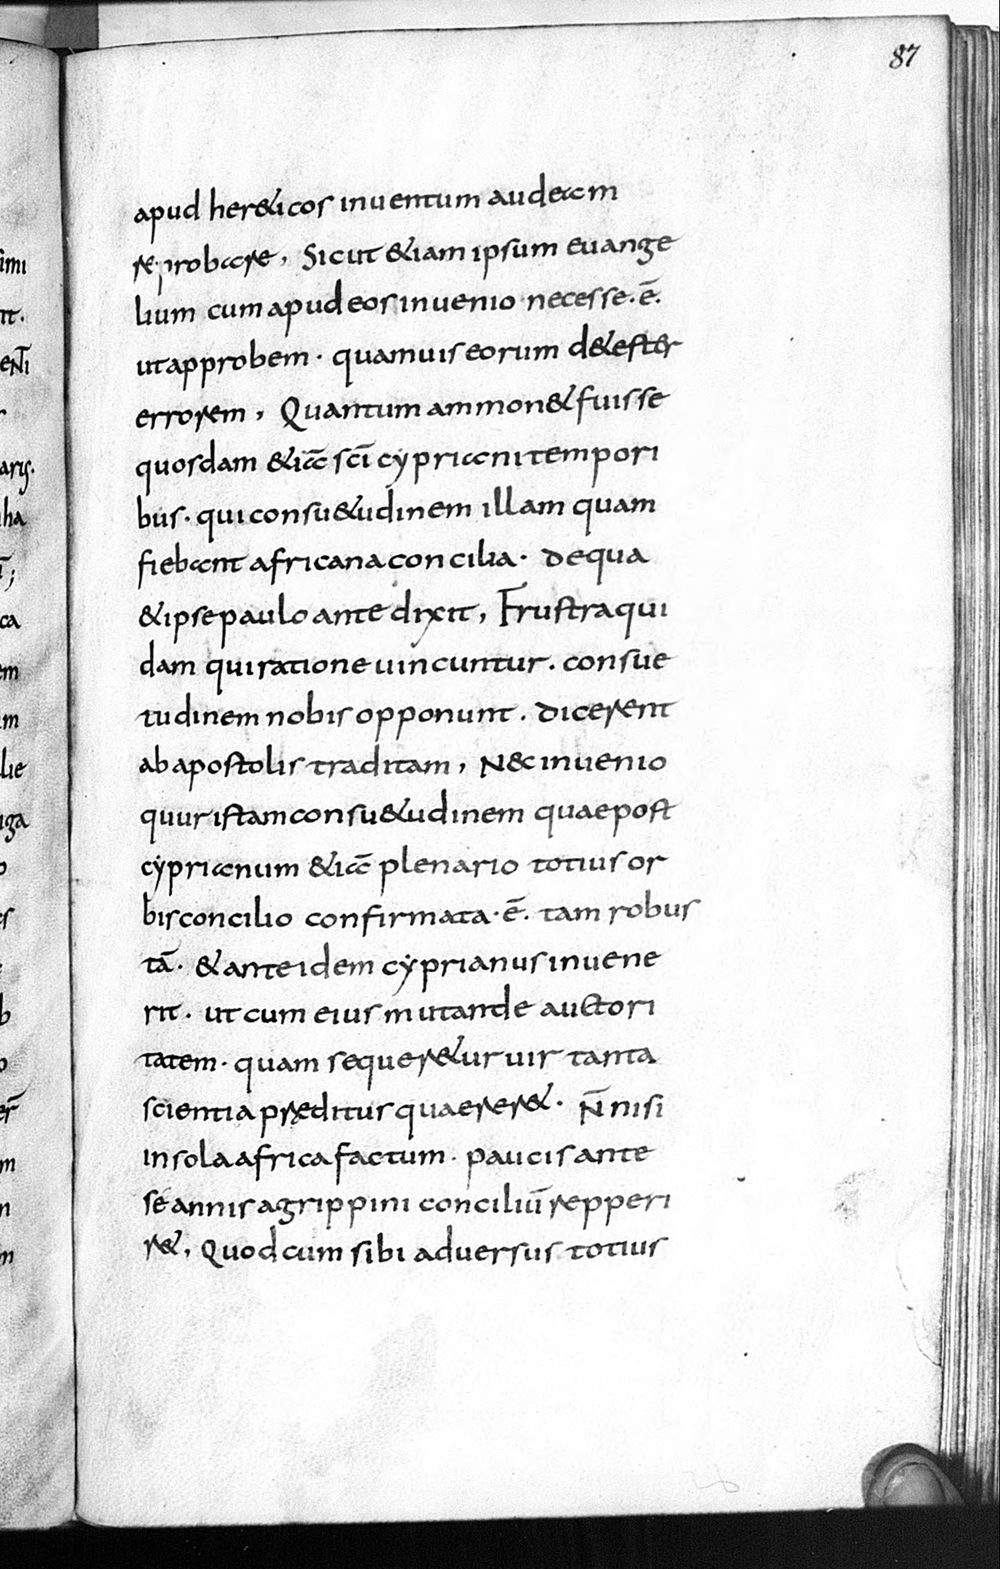 87
apud her&icos inuentum audeam
reprobare, Sicut &iam ipsum euange
lium cum apud eos inuenio necesse·ē·
ut approbem· quamuis eorum d&ester
errorem, Quantum ammon& fuisse
quosdam &iā sc̄i cypriani tempori
bus· qui consu&udinem illam quam
fiebant africana concilia· de qua
& ipse paulo ante dixit, Frustra qui
dam qui ratione uincuntur· consue
tudinem nobis opponunt· dicerent
ab apostolis traditam, Nec inuenio
quur istam consu&udinem quae post
cyprianum &iā plenario totius or
bis concilio confirmata·ē· tam robus
tā· & ante idem cyprianus inuene
rit· ut cum eius mutande auctori
tatem· quam sequer&ur uir tanta
scientia preditus quaerer&· N̄ nisi
in sola africa factum· paucis ante
se annis agrippini conciliū repperi
r&, Quod cum sibi aduersus totius